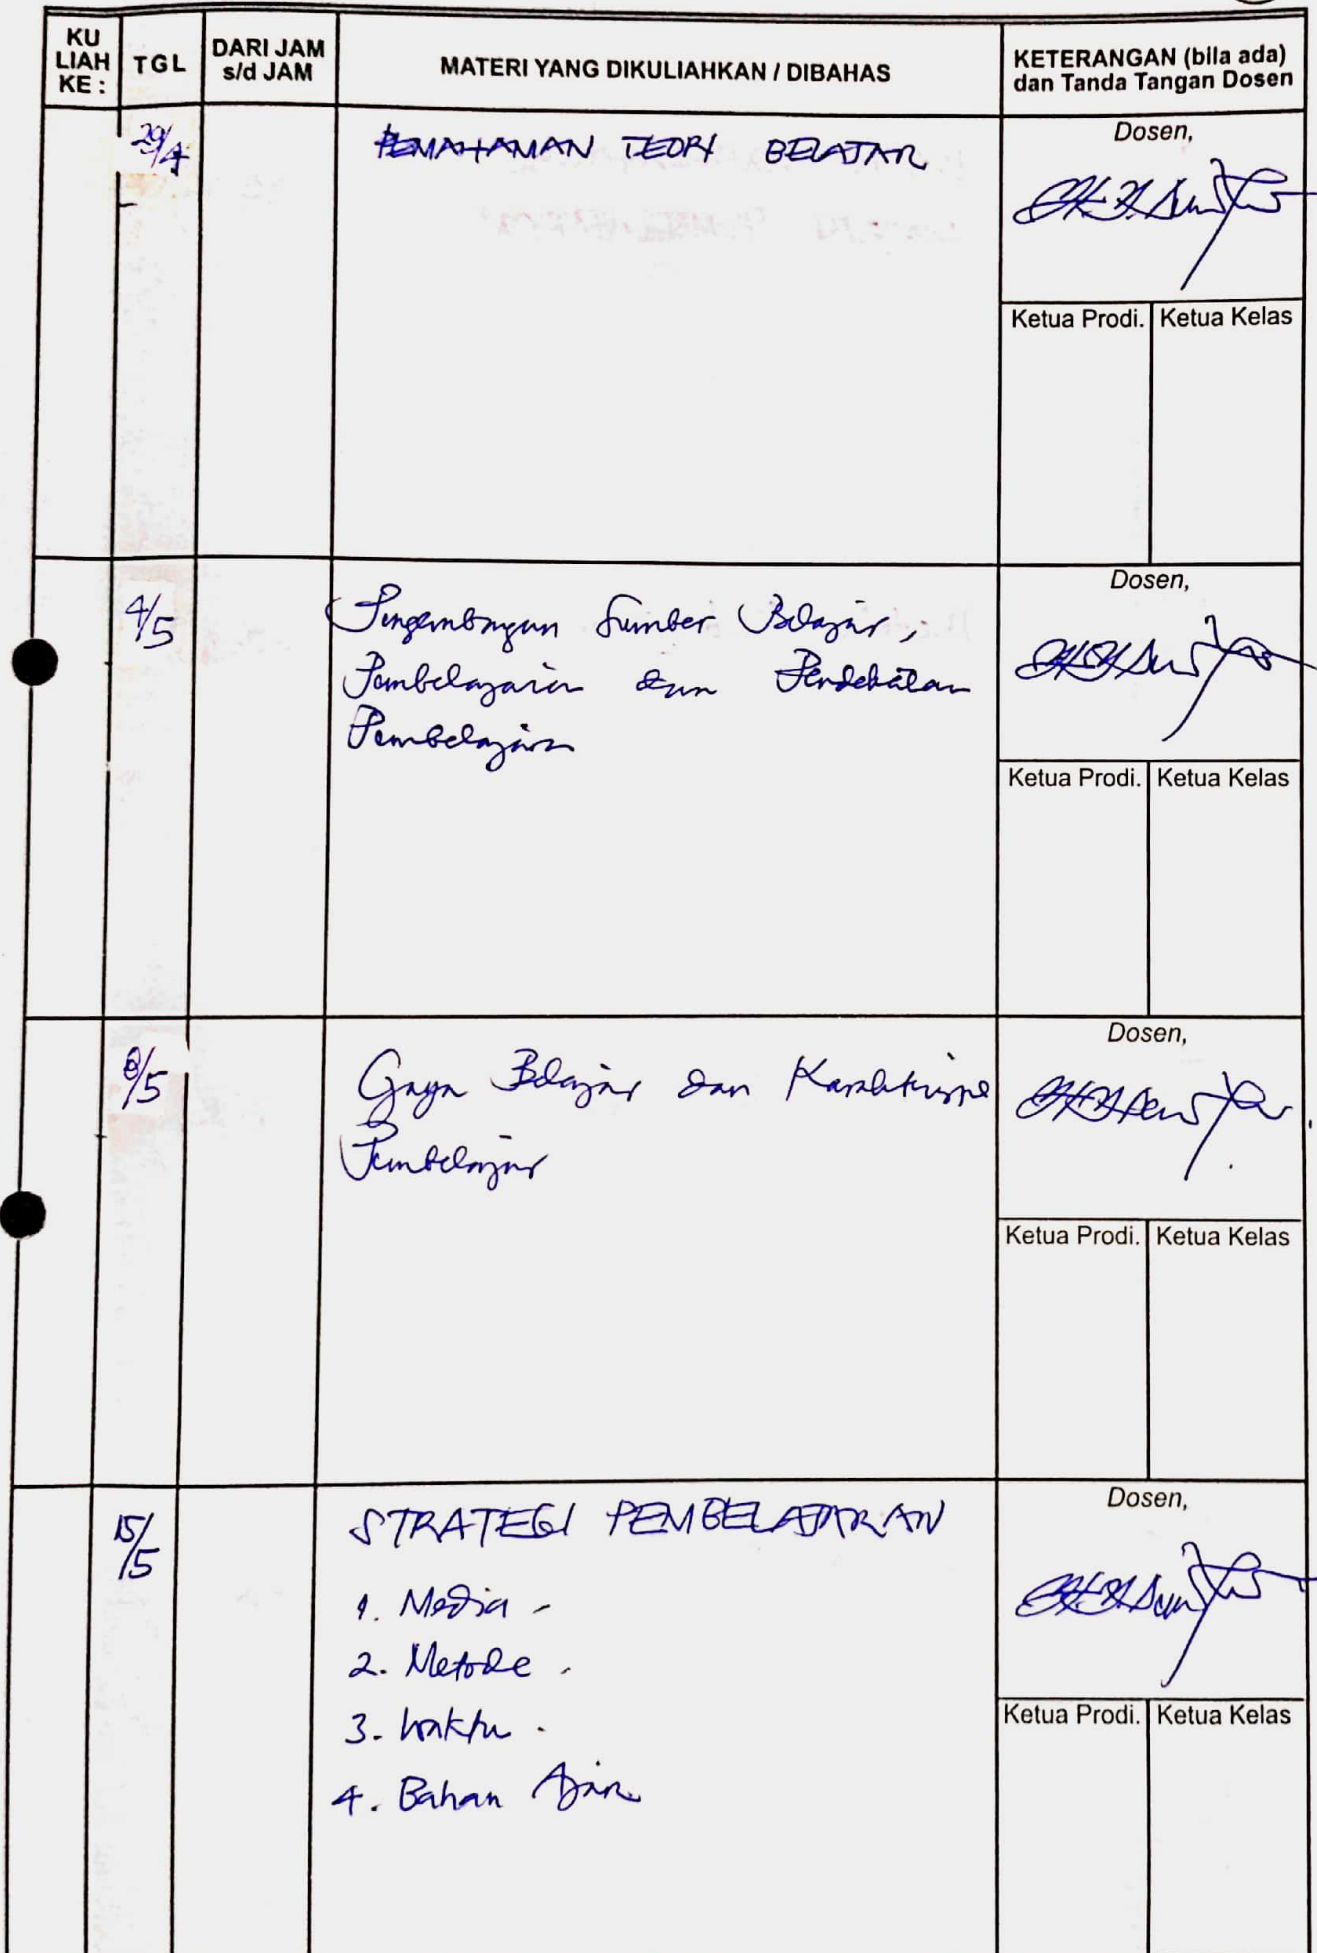 KU LIAH KE :
TGL
DARI JAM s/d JAM
MATERI YANG DIKULIAHKAN / DIBAHAS
KETERANGAN (bila ada) dan Tanda Tangan Dosen
29/4
PEMAHAMAN TEORI BELAJAR
Dosen,
Ketua Prodi.
Ketua Kelas
4/5
Pengembangan Sumber Belajar,
Pembelajaran dan Pendekatan
Pembelajaran
Dosen,
Ketua Prodi.
Ketua Kelas
8/5
Gaya Belajar dan
Pembelajar
Dosen,
Ketua Prodi.
Ketua Kelas
15/5
STRATEGI PEMBELAJARAN
1. Media -
2. Metode .
3. Waktu .
4. Bahan Ajar
Dosen,
Ketua Prodi.
Ketua Kelas